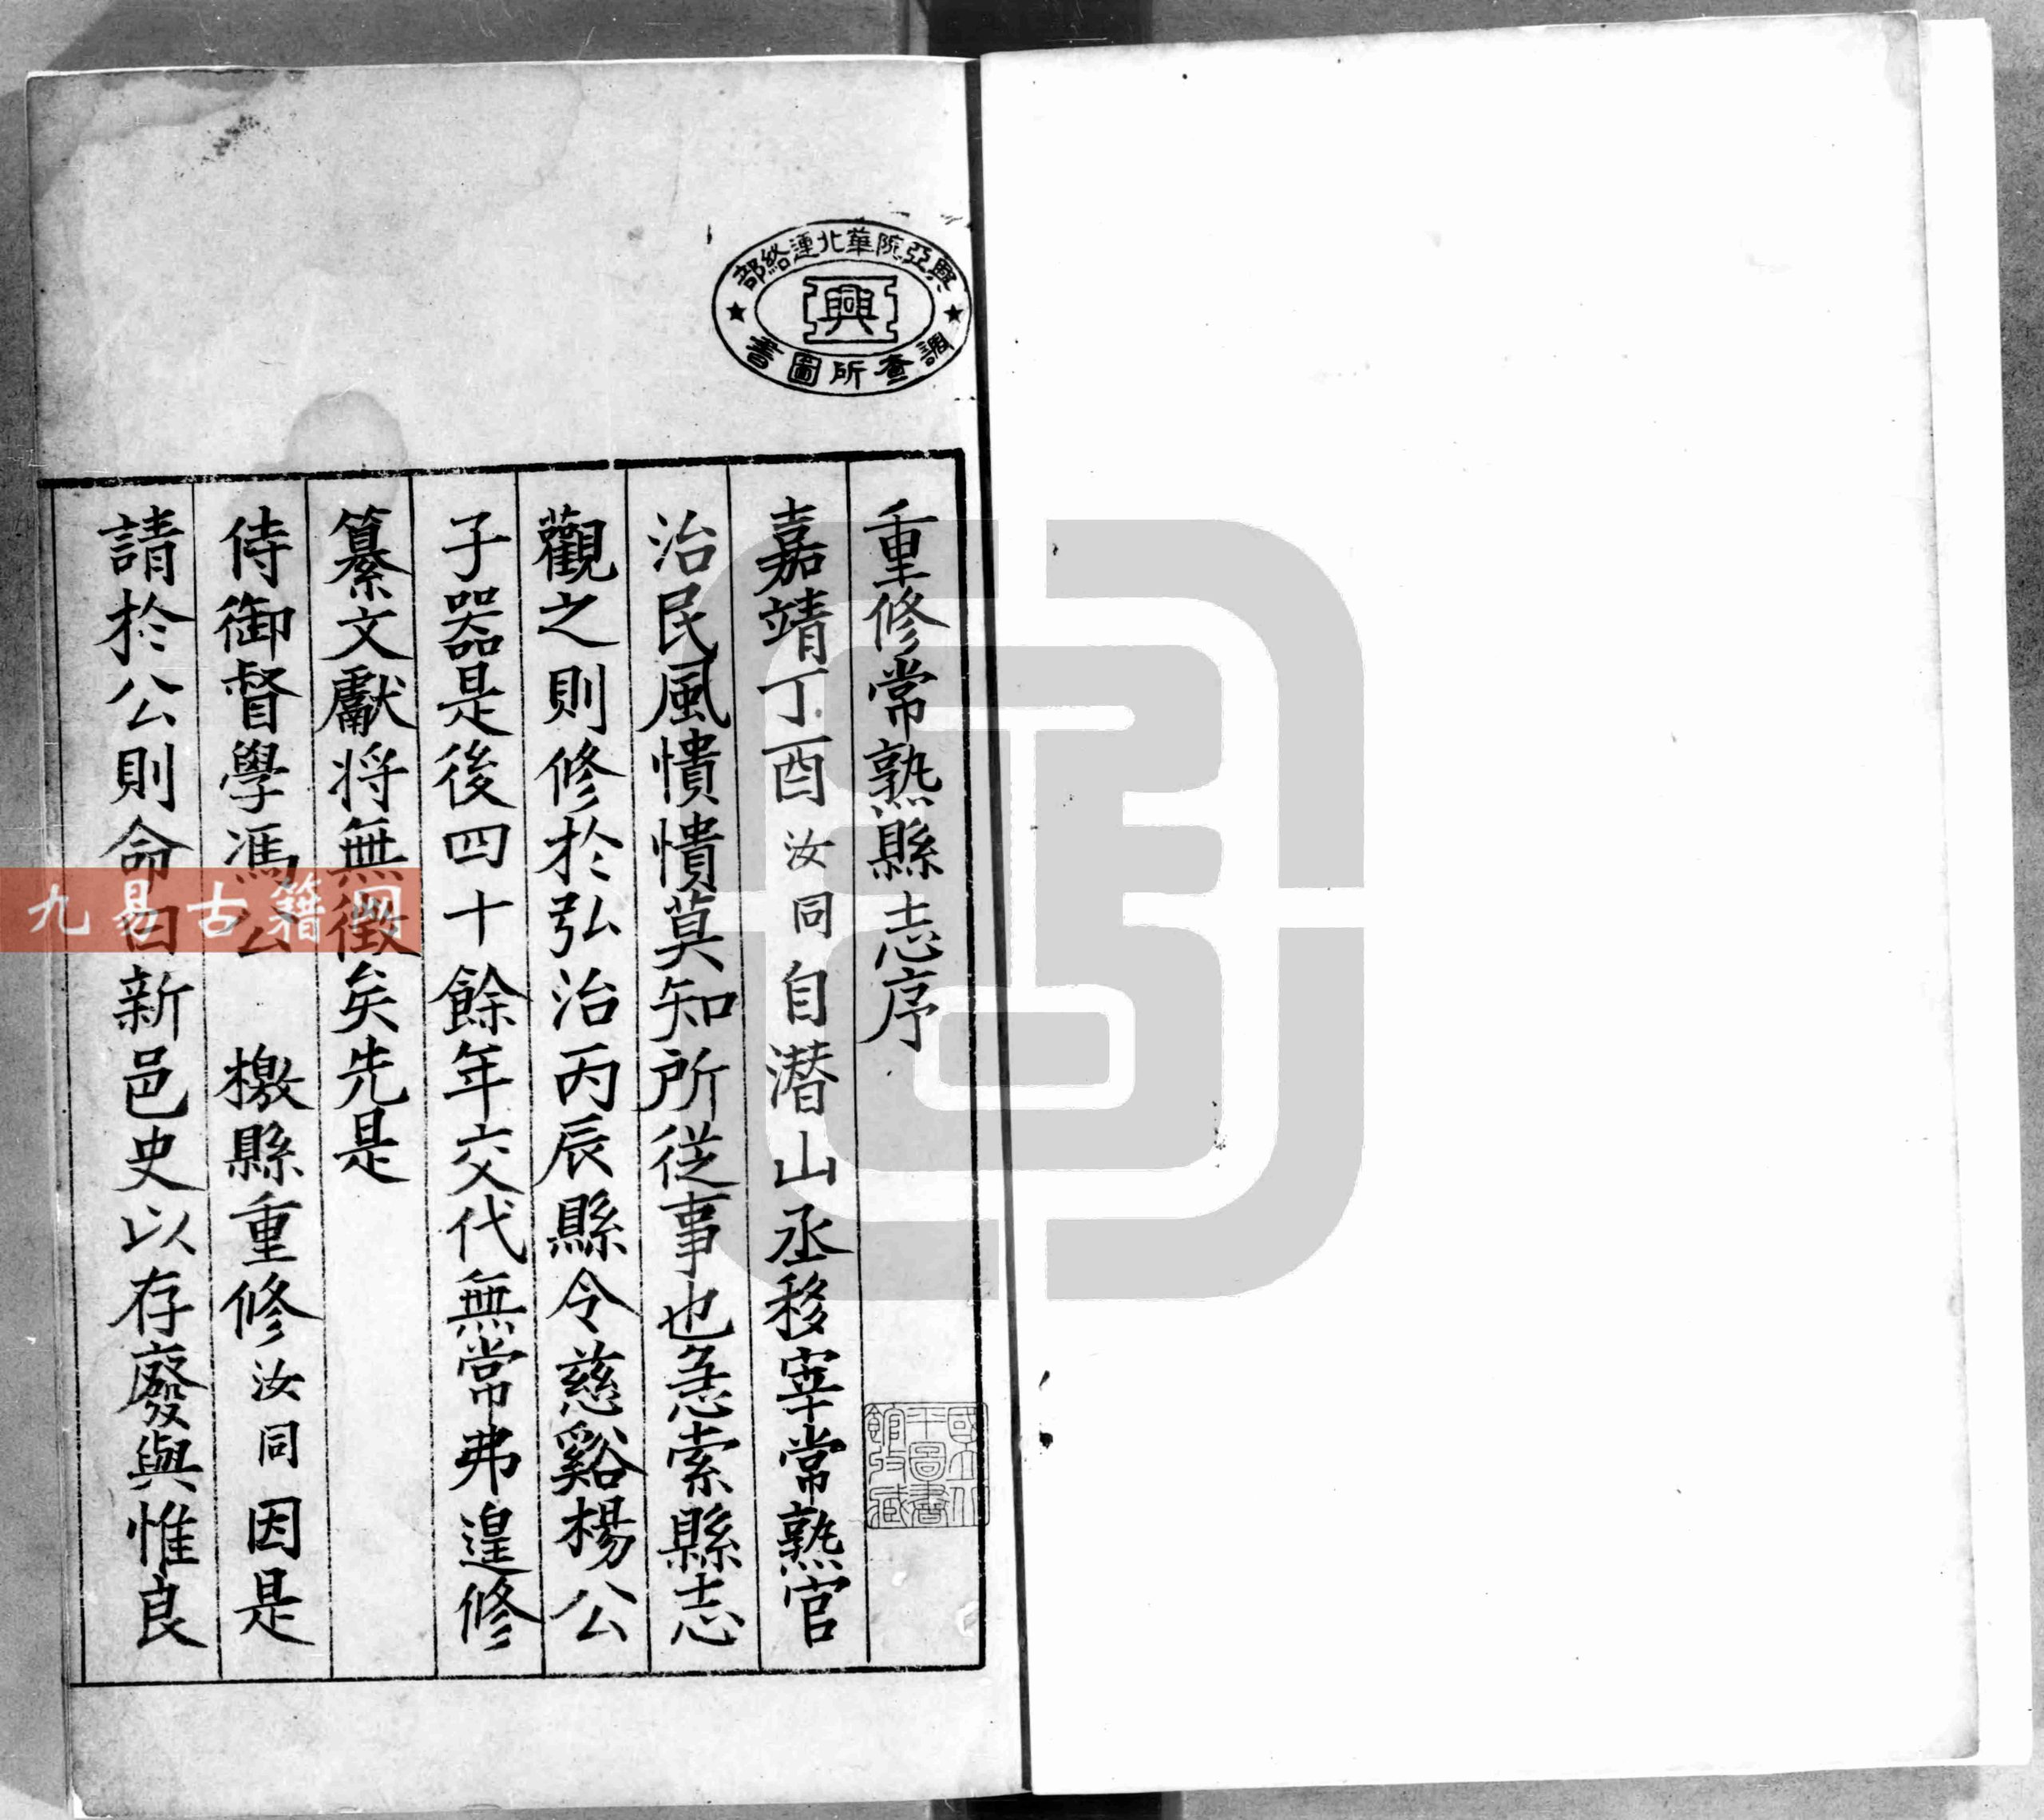 重修常熟縣志序
嘉靖丁酉汝同自潛山丞移宰常熟官
治民風憒憒莫知所從事也急索縣志
觀之則修於弘治丙辰縣令慈谿楊公
子器是後四十餘年交代無常弗遑修
纂文獻將無徵矣先是
侍御督學馮公 檄縣重修汝同因是
請於公則命曰新邑史以存廢與惟良
興亞院華北連絡部
興
調查所圖書
國立北
平圖書
館收藏
九易古籍网